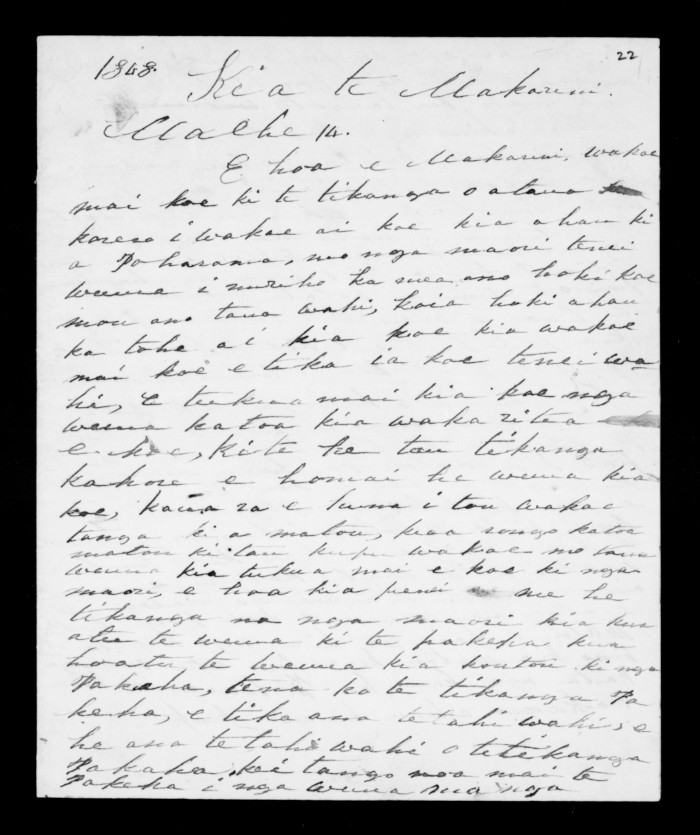 22
1848.
Kia te Makarini.
Maehe 14.
E hoa e Makarini, wakae
mai koe ki te tikanga o atawa
korero i wakae ai koe kia ahau ki
a Poharama, mo nga maori tenei
wenua i muri ka mea ano hoki koe
mou ano taua wahi, koia hoki ahau
ka tohe ai kia koe kia wakae
mai koe e tika ia koe tenei wa
hi, e tukua mai kia koe nga
wenua katoa kia waka ritea
e koe, Ki te he tau tikanga
kahore e homai he wenua kia
koe, kaua ra e huna i tou wakae
tanga ki a matou, kua rongo katoa
matou ki tau kupu wakae mo taua
wenua kia tukua mai e koe ki nga
maori, e hoa kia penei me he
tikanga na nga maori kia kua
atu te wenua ki te pakeha kua
hoatu te wenua kia koutou ki nga
Pakeha, tena ko te tikanga Pa
keha, e tika ana tetahi wahi, e
he ana tetahi wahi o te tikanga
Pakeha, kei tango noa mai te
Pakeha i nga wenua nga